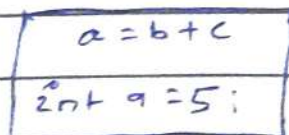 a = b + c
int a = 5;